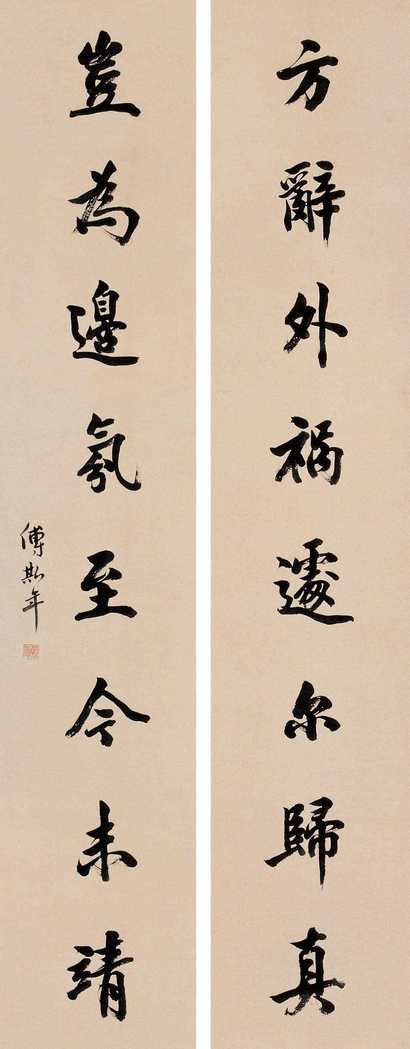 方辭外祸遽尔歸真
豈為邊氛至今未靖
傅斯年